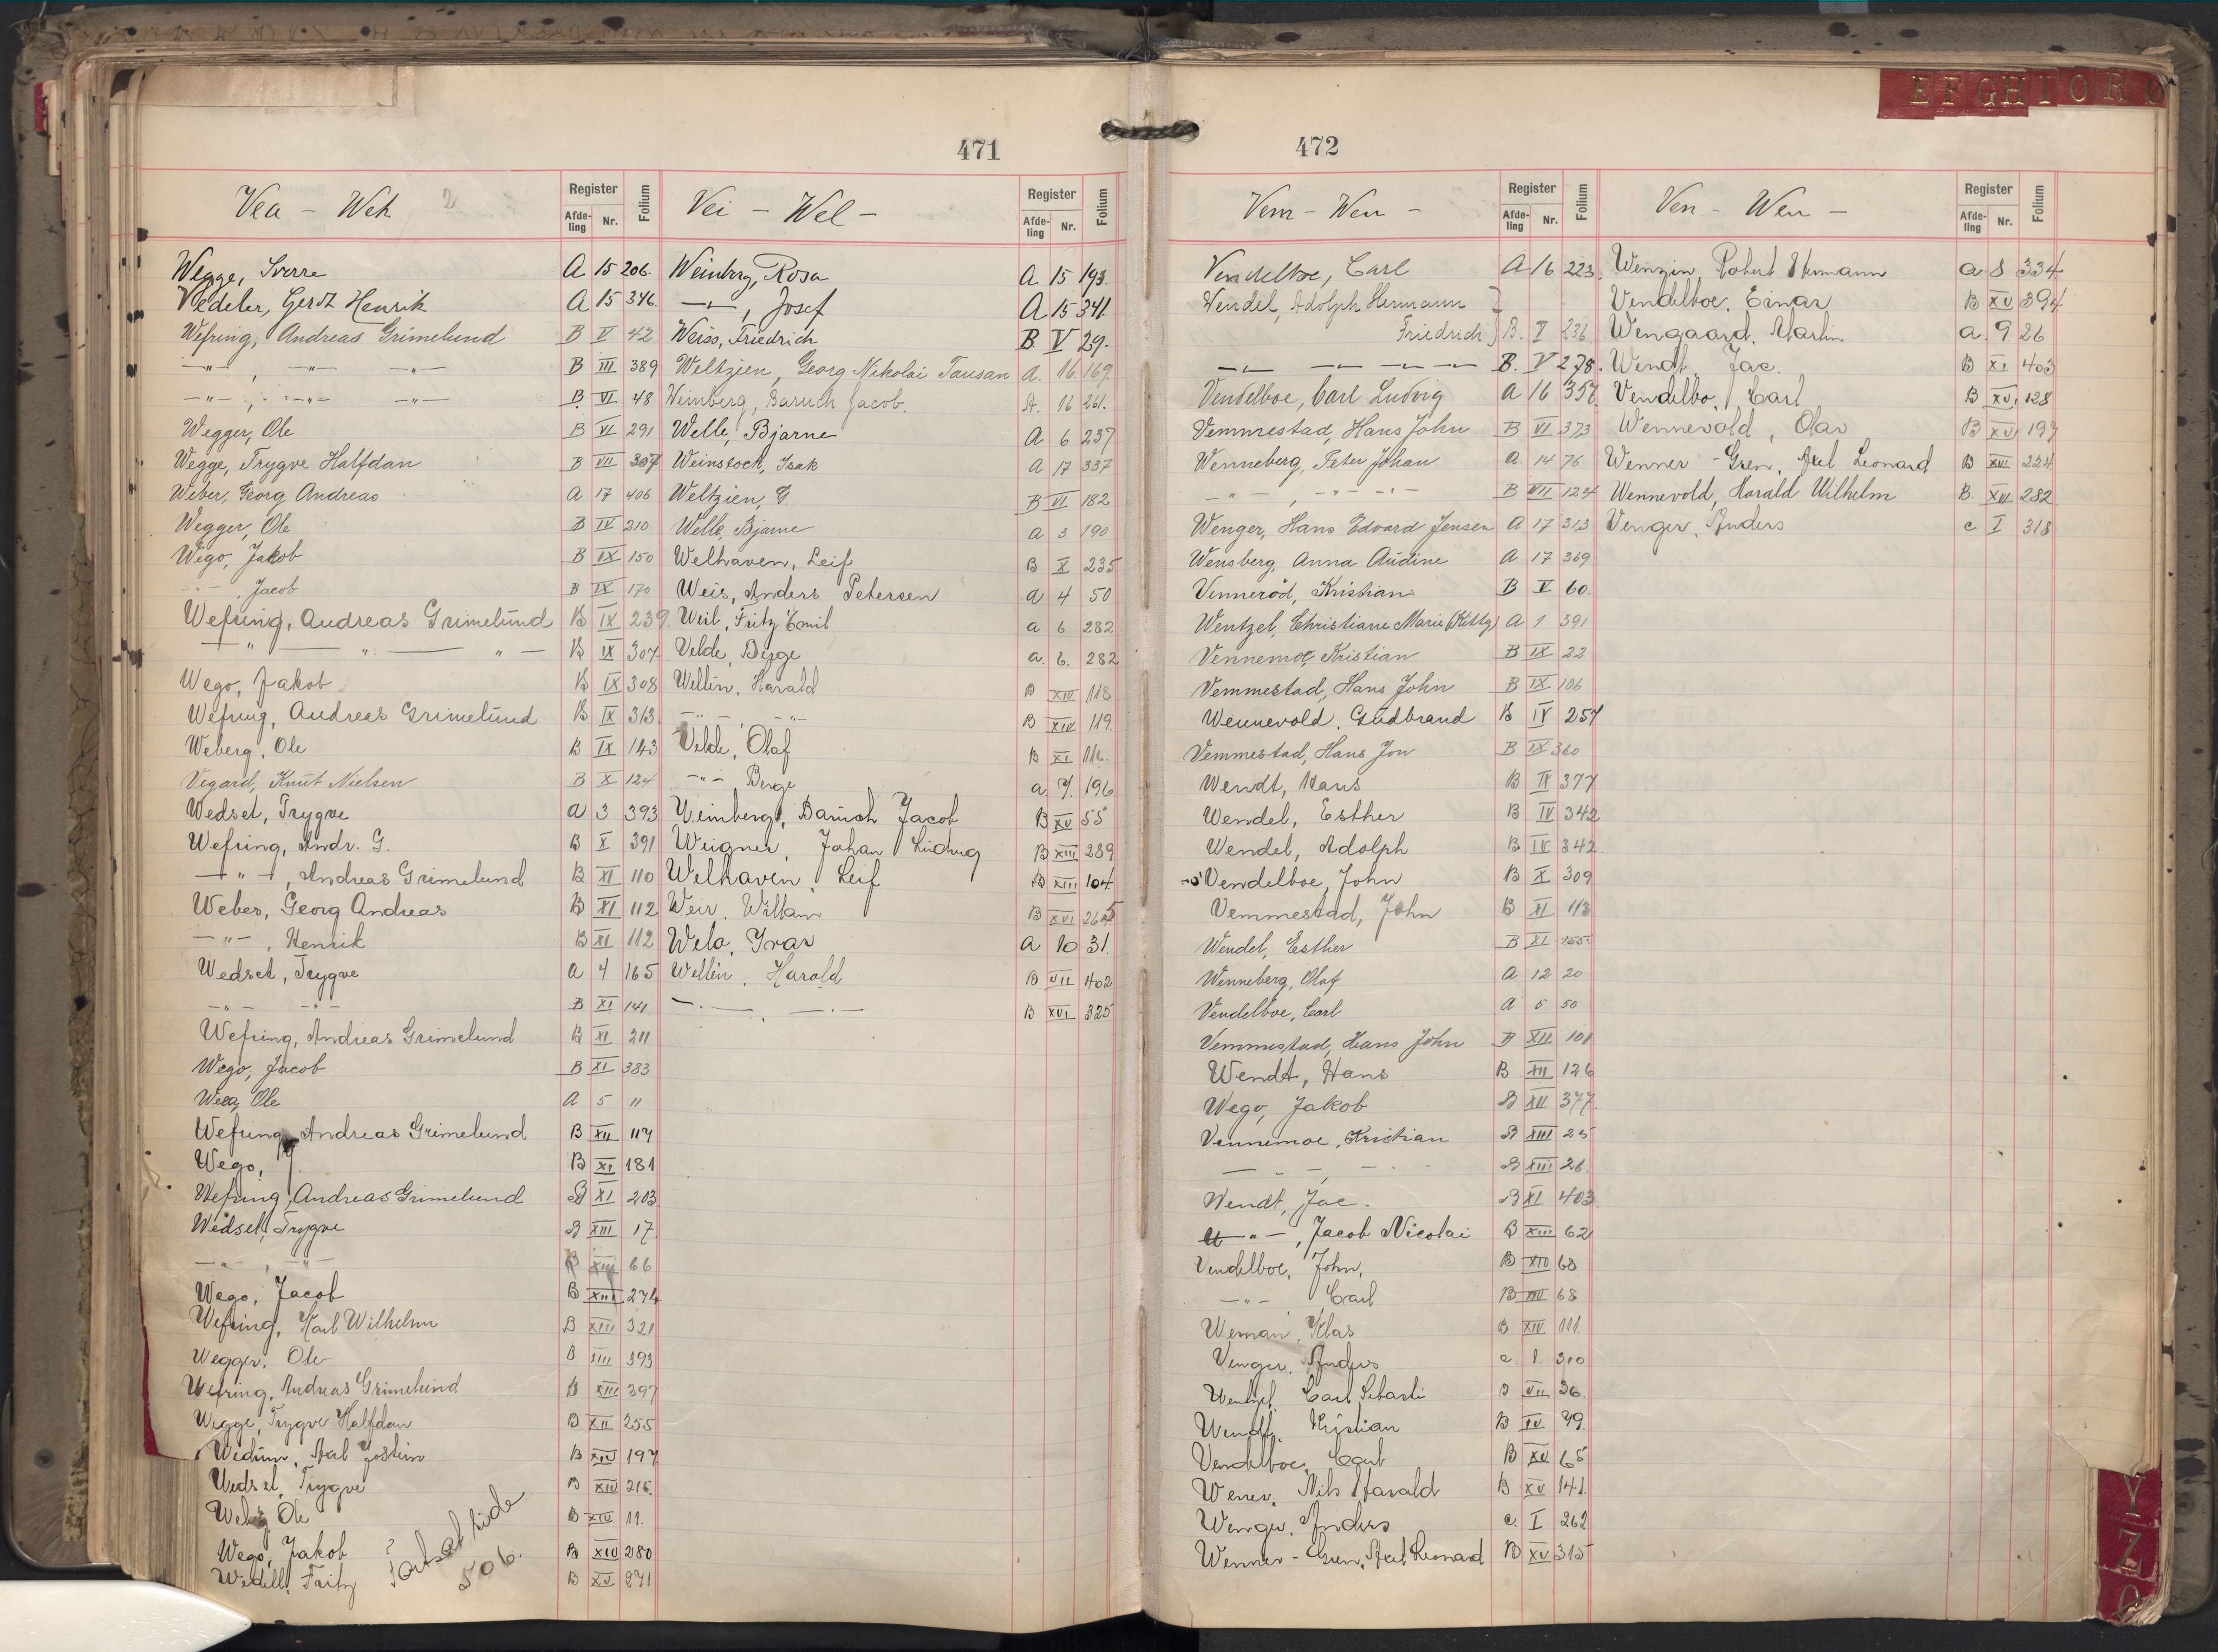 471
Vea - Weh 2
Register Folium
Afde-ling Nr.
Wegge, Sverre A 15 206.
Vedeler, Gerdt Henrik A 15 346.
Wefring, Andreas Grimelund B V 42
-"- , -"- -"- B III 389
-"- , -"- -"- B VI 48
Wegger, Ole B VI 291
Wegge, Trygve Halfdan B VII 307
Weber, Georg Andreas A 17 406
Wegger, Ole B IV 210
Wego, Jakob B IX 150
-"- , Jacob B IX 170
Wefring, Andreas Grimelund B IX 239
-"- -"- -"- B IX 307
Wego, Jakob B IX 308
Wefring, Andreas Grimelund B IX 313
Weberg, Ole B IX 143
Vegard, Knut Nielsen B X 124
Wedset, Trygve A 3 393
Wefring, Andr. G. B X 391
-"- , Andreas Grimelund B XI 110
Weber, Georg Andreas B XI 112
-"- , Henrik B XI 112
Wedset, Trygve A 4 165
-"- -"- B XI 141
Wefring, Andreas Grimelund B XI 211
Wego, Jacob B XI 383
Ole A 5 11
Wefring, Andreas Grimelund B XII 117
Wego, J. B XI 181
Wefring, Andreas Grimelund B XI 203
Wedset, Trygve B XIII 17
-"- , -"- B XIII 66
Wego, Jacob B XIII 274
Wefring, Karl Wilhelm B XIII 321
Wegger, Ole B XIII 393
Wefring, Andreas Grimelund B XIII 397
Wegge, Trygve Halfdan B XII 255
Wedum, Axel Jostein B XIV 197
Wedset, Trygve B XIV 216.
Ole B XIV 11.
Wego, Jakob B XIV 280
Wedell, Fritz B XV 271
? Fortsat side 506.
Vei - Wel -
Register Folium
Afde-ling Nr.
Weinberg, Rosa A 15 193.
-"- , Josef A 15 341.
Weiss, Friedrich B. V 29.
Weltzien, Georg Nikolai Tausan A. 16. 169.
Weinberg, Baruch Jacob. A. 16 261.
Welle, Bjarne A 6 237
Weinstock, Isak A 17 337
Weltzien, G. B VI 182
Welle, Bjarne A 3 190
Welhaven, Leif B X 235
Weis, Anders Petersen A 4 50
Weil, Fritz Emil A 6 282
Velde, Berge A. 6. 282
Wellin, Harald B XIV 118
-"- , -"- B XIV 119.
Velde, Olaf B XI 116.
-"- , Berge A. 7. 196
Weinberg, Baruch Jacob B XV 55
Weigner, Johan Ludvig B XIII 289
Welhaven, Leif B XIII 104
Weir, William B XVI 265
Welo, Ivar A 10 31.
Wellin, Harald B VII 402
-"- , -"- B XVI 325
472
Vem - Wen -
Register Folium
Afde-ling Nr.
Vendelboe, Carl A 16 223.
Wendel, Adolph Hermann
Friedrich } B. V 236
-"- -"- -"- -"- B. V 278.
Vendelboe, Carl Ludvig A 16 357.
Vemmestad, Hans John B VI 373
Wenneberg, Peter Johan A 14 76
-"- , -"- -"- B VII 124
Wenger, Hans Edvard Jensen A 17 313
Wensberg, Anna Audine A 17 369
Vennerød, Kristian B V 60.
Wentzel, Christiane Marie (Kitty) A 1 391
Vennemoe, Kristian B IX 22
Vemmestad, Hans John B IX 106
Wennevold, Gudbrand B IV 257
Vemmestad, Hans Jon B IX 360
Wendt, Hans B IX 377
Wendel, Esther B IV 342
Wendel, Adolph B IV 342
Vendelboe, John B X 309
Vemmestad, John B XI 113
Wendel, Esther B XI 155
Wenneberg, Olaf A 12 20
Vendelboe, Carl A 5 50
Vemmestad, Hans John B XII 101
Wendt, Hans B XII 126
Wego, Jakob B XII 377.
Vennemoe, Kristian B XIII 25
-"- , -"- B XIII 26.
Wendt, Jac. B XI 403
-"- , Jacob Nicolai B XIII 62
Vendelboe, John, B XIV 68
-"- , Carl B XIV 68
Weman, Klas B XIV 111
Venger, Anders c. 1. 310
Wentzel, Carl B VII 36.
Wendt, Kristian B XV 49.
Vendelboe, Carl B XV 65
Wener, Nils Harald B XV 141.
Wenger, Anders c. I 262
Wenner-Gren, Axel Leonard B XV 315
Ven - Wen -
Register Folium
Afde-ling Nr.
Wenzin, Robert Hermann A 8 334
Vendelboe, Einar B XV 394
Wengaard, Martin A. 9 26
Wendt, Jac. B XI 403
Vendelbo, Carl B XV 128
Wennevold, Olav B XV 197
Wenner-Gren, Axel Leonard B XVI 224
Wennevold, Harald Wilhelm B. XVI 282
Venger, Anders c I 318
E F G H I O R Ø
Y
Z